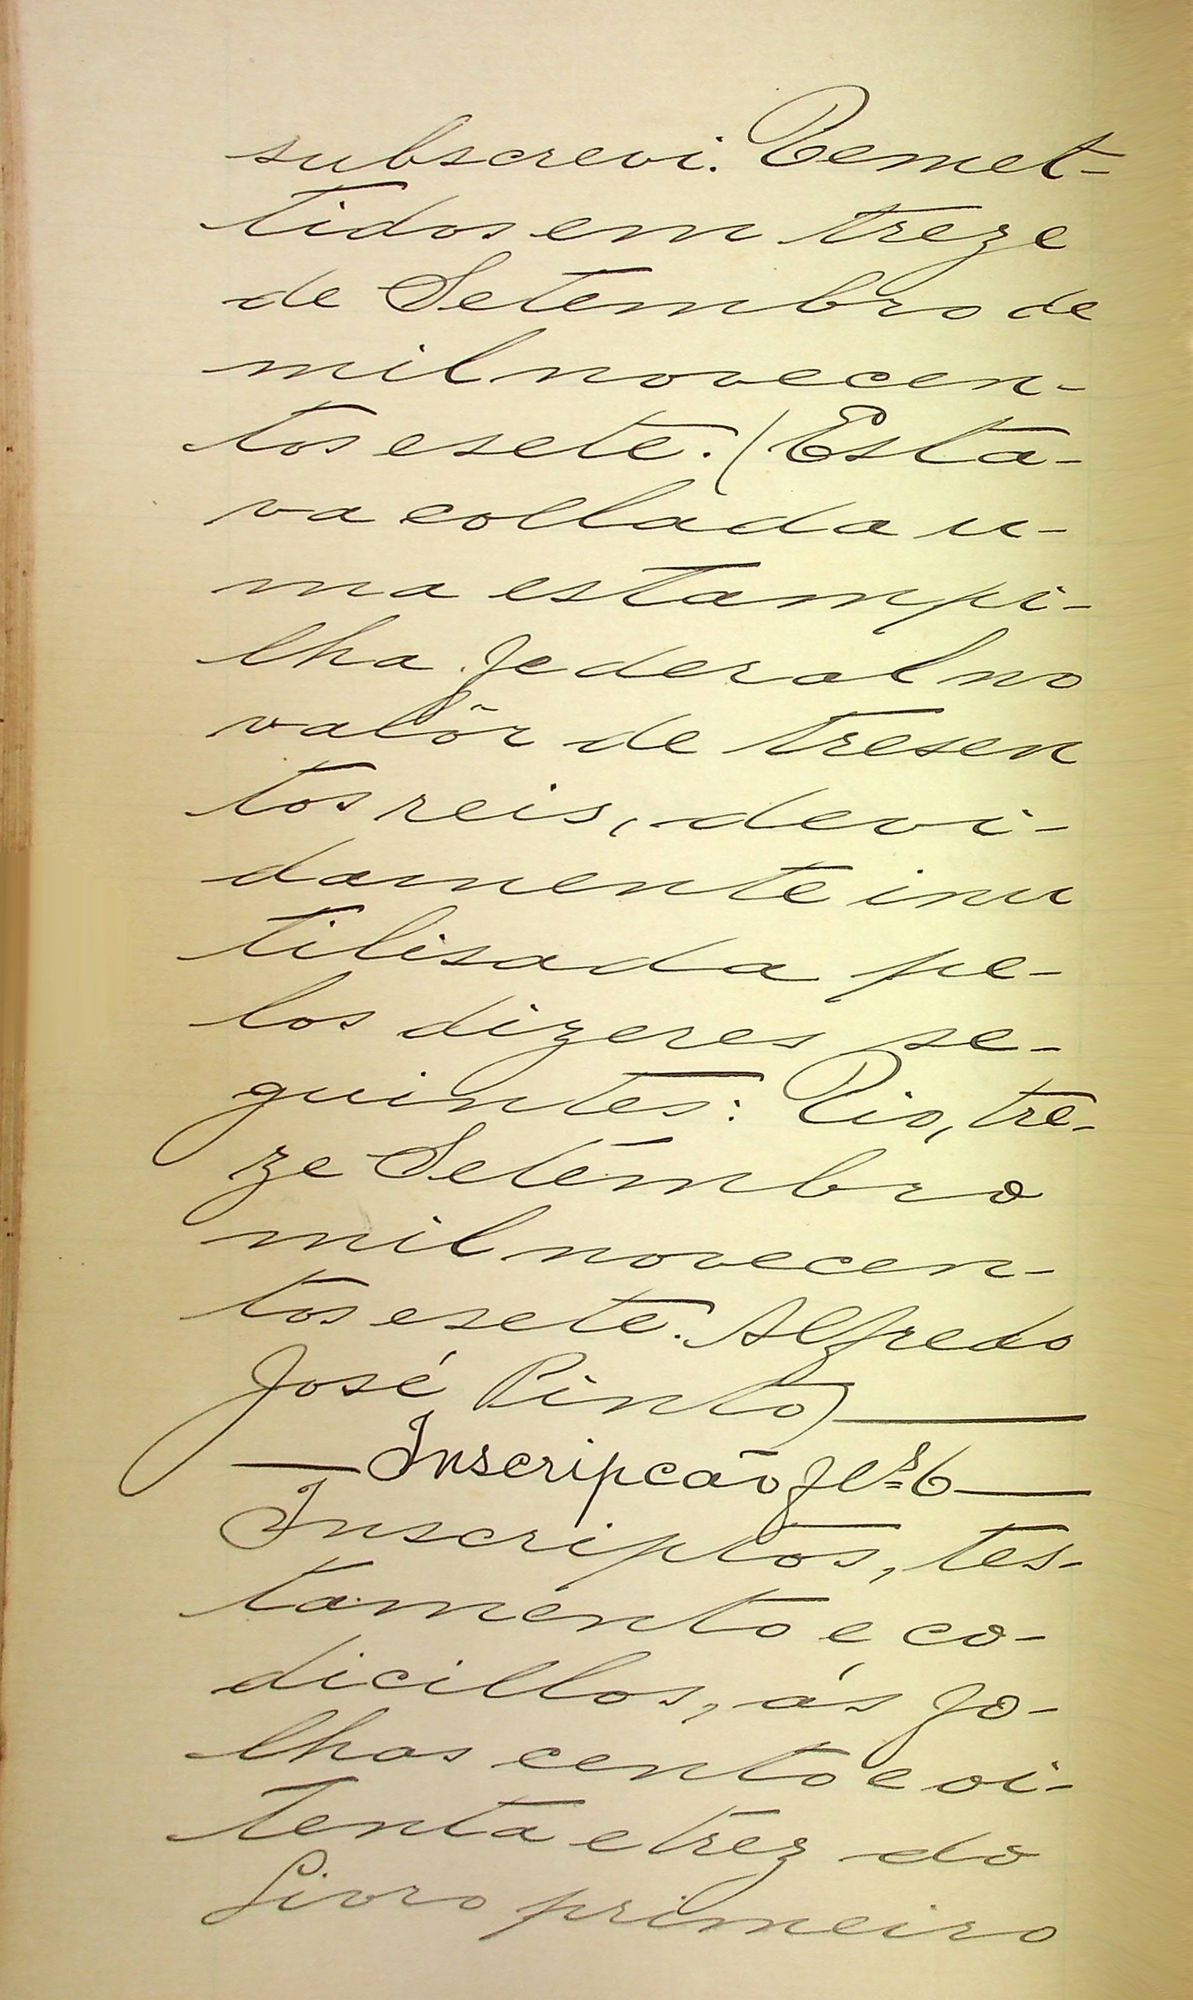 subscrevi. Remet-
tidos em treze
de Setembro de
mil novecen-
tos e sete. (Esta-
va collada u-
ma estampi-
lha federal no
valôr de tresen
tos reis, devi-
damente inu
tilisada pe-
los dizeres se-
guintes: Rio, tre-
ze Setembro
mil novecen-
tos e sete. Alfredo
José Pinto)
Inscripcão fls 6
Inscriptos, tes-
tamento e co-
dicillos, ás fo-
lhas cento e oi-
tenta e trez do
Livro primeiro